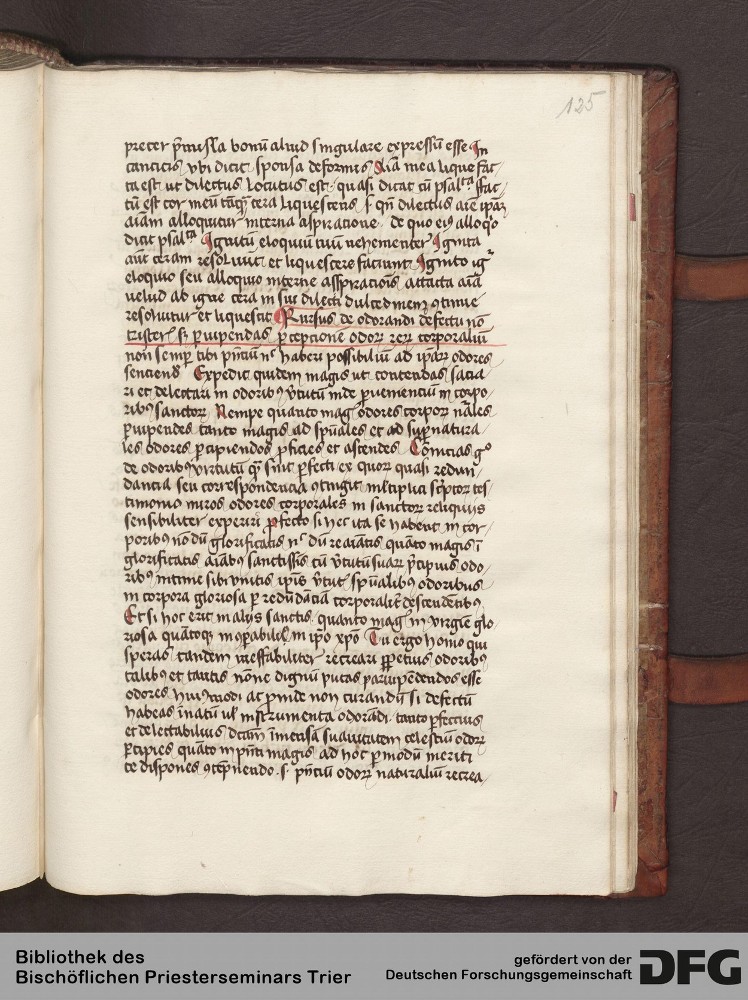 125
preter p̄missa bonū aliud singulare expressū esse In
canticis vbi dicit sponsa deformis Aīa mea lique fac
ta est ut dilectus locutus est · quasi dicat cū psalᵗᵃ ffac
tū est cor meū tāqʒ cera liquescens s̄ qn̄ dilectus
aīam alloquitur interna aspiracione · de quo eiꝰ alloqⁱo
dicit psalᵗᵃ Ignitū eloquiū tuū vehementer Ignita
aūt ceram resoluūt et liquescere faciunt Ignito igʳ
eloquio seu alloquio interne asspiracionis attacta aīa
velud ab igne cera in sui dilecti dulcedinem ꝯtinue
resoluitur et liquescit Rursus de odorandi defectu nō
tristeris si ꝑuipendas ꝑceptionē odoꝝ reꝝ corporaliū
non semꝑ tibi p̄ntiū nᶜ haberi possibiliū ad ip̄aꝝ odores
senciendꝰ Expedit quidem magis ut contendas sacia
ri et delectari in odoribꝰ v̓tutū inde ꝓueniencium in corpo
ribꝰ sanctoꝝ Nempe quanto magˢ odores corpoꝝ nāles
ꝑuipendes tanto magis ad sp̄uales et ad suꝑnatura
les odores ꝑcipiendos ꝓficies et ascendes Cōnicias gᵒ
de odoribꝰ virtutū qͣ sint ꝑfecti ex quoꝝ quasi redun
dancia seu correspondencia ꝯtingit mltiplici sc̓ptoꝝ tes
timonio miros odores corporales in sanctoꝝ reliquiis
sensibiliter experiri ꝓfecto si hec ita se habent in cor
poribꝰ nōdū glorificatis nᶜ dū reaīatis quāto magis ī
glorificatis aīabꝰ sanctissīs cū v̓tutū suaꝝ p̓cipuis odo
ribꝰ intime sibi vnitis ip̄is v̓tutū sp̄ualibꝰ odoribus
in corpora gloriosa ꝑ redūdāciā corporalit̓ descendētibꝰ
Et si hoc erit in aliis sanctis quanto magˢ in virgīe glo
riosa quātoqʒ inꝯparabilit̓ in ip̄o xp̄o Tu ergo homo qui
speras tandem ineffabiliter recreari ꝑpetuis odoribꝰ
talibꝰ et tantis nōne dignū putas paruipendendos esse
odores huiꝰmodi ac ꝓinde non curandū si defectū
habeas īnatū ul̓ instrumenta odorādi · tanto ꝑfectius
et delectabilius dc̄am īmensā suauitatem celestiū odoꝝ
ꝑcipies quāto in p̄nti magis ad hoc ꝑ modū meriti
te dispones ꝯtēpnendo · s · p̄ntiū odoꝝ naturaliū recrea
Bibliothek des
Bischöflichen Priesterseminars Trier
gefördert von der
Deutschen Forschungsgemeinschaft DFG